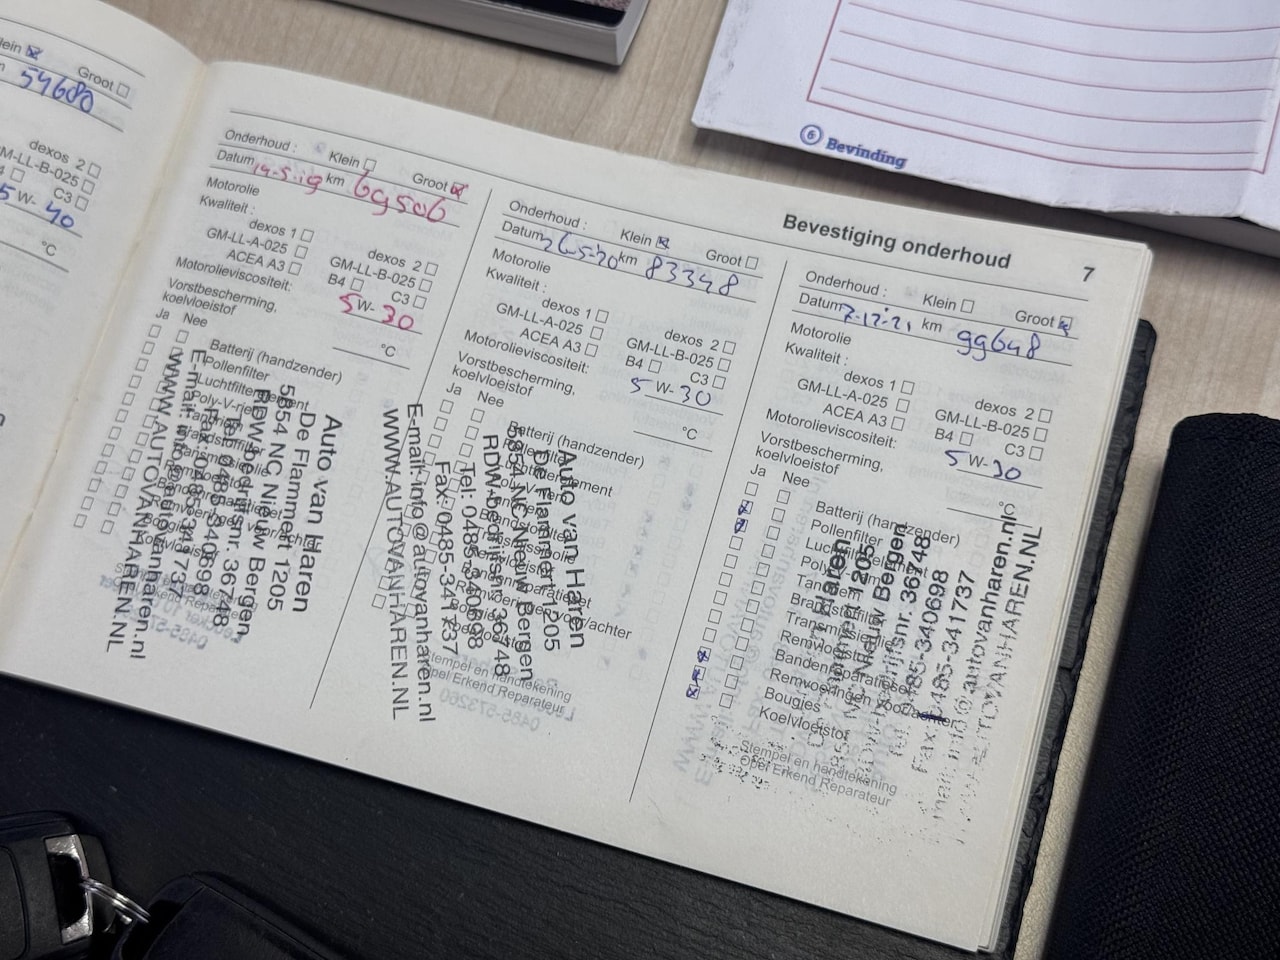 Klein
Groot
54680
dexos 2
GM-LL-B-025
C3
W- 40
°C
Onderhoud : Klein Groot
Datum 14-5-19 km 69506
Motorolie
Kwaliteit :
dexos 1 dexos 2
GM-LL-A-025 GM-LL-B-025
ACEA A3 B4 C3
Motorolieviscositeit: 5 W- 30
Vorstbescherming,
koelvloeistof °C
Ja Nee
Batterij (handzender)
Pollenfilter
Auto van Haren
De Flammert 1205
5854 NC Nieuw Bergen
RDW-bedrijfsnr. 36748
Fax: 0485-341737
E-mail: info@autovanharen.nl
WWW.AUTOVANHAREN.NL
Onderhoud : Klein Groot
Datum 26-5-20 km 83348
Motorolie
Kwaliteit :
dexos 1 dexos 2
GM-LL-A-025 GM-LL-B-025
ACEA A3 B4 C3
Motorolieviscositeit: 5 W- 30
Vorstbescherming,
koelvloeistof °C
Ja Nee
Batterij (handzender)
Auto van Haren
De Flammert 1205
5854 NC Nieuw Bergen
RDW-bedrijfsnr. 36748
Tel: 0485-340698
Fax: 0485-341737
E-mail: info@autovanharen.nl
WWW.AUTOVANHAREN.NL
Stempel en handtekening
Opel Erkend Reparateur
Bevestiging onderhoud 7
Onderhoud : Klein Groot
Datum 7-12-21 km 99648
Motorolie
Kwaliteit :
dexos 1 dexos 2
GM-LL-A-025 GM-LL-B-025
ACEA A3 B4 C3
Motorolieviscositeit: 5 W- 30
Vorstbescherming,
koelvloeistof °C
Ja Nee
Batterij (handzender)
Pollenfilter
Luchtfilterelement
Tandriem
Brandstoffilter
Transmissieolie
Remvloeistof
Bandenreparatieset
Remvoeringen voor/achter
Bougies
Koelvloeistof
Stempel en handtekening
Opel Erkend Reparateur
Haren
1205
Nieuw Bergen
36748
0485-340698
Fax: 0485-341737
info@autovanharen.nl
AUTOVANHAREN.NL
6 Bevinding